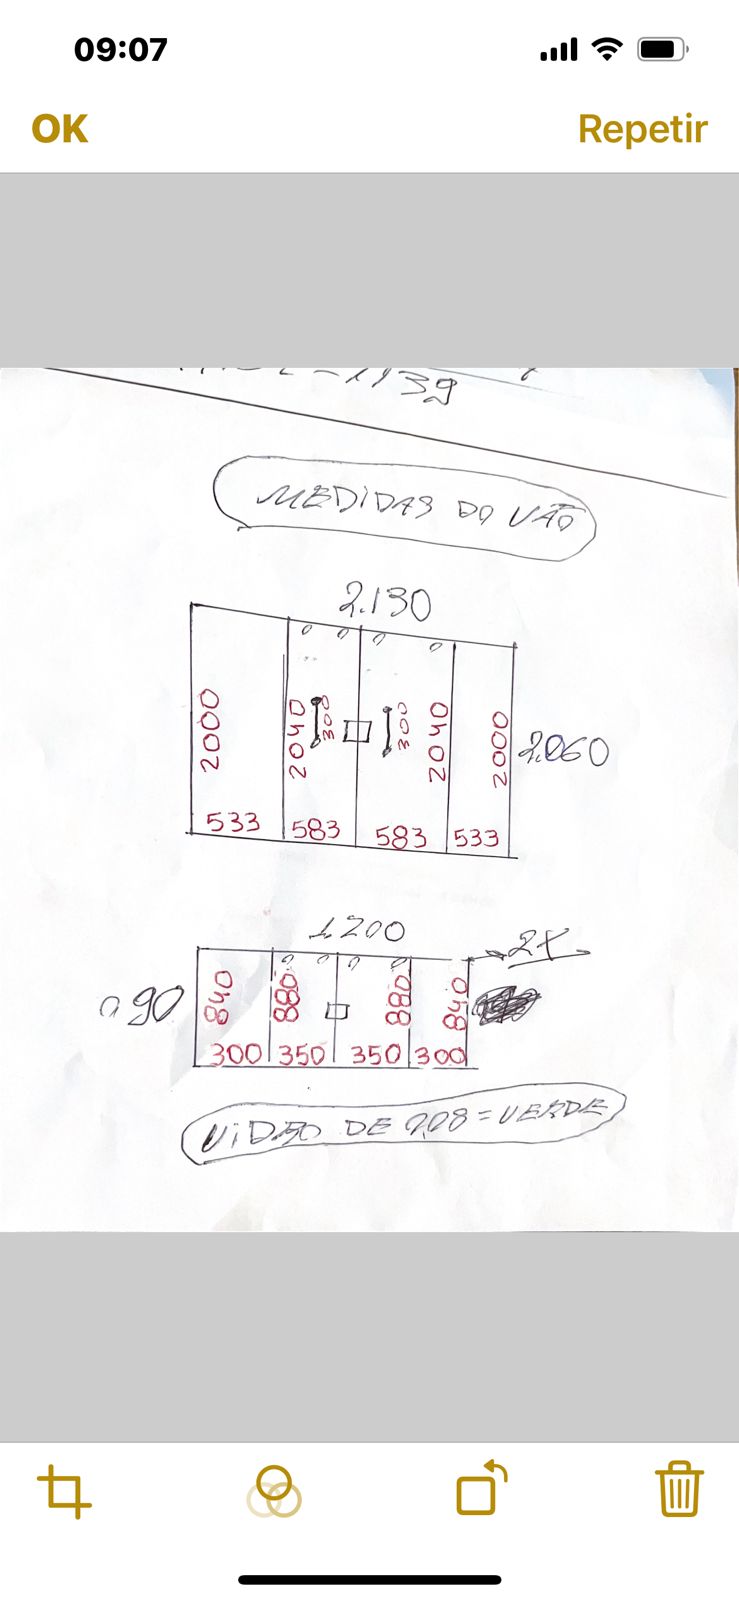 09:07
OK Repetir
139
MEDIDAS DO VÃO
2.130
2000 2040 300 300 2040 2000 2.060
533 583 583 533
1.200
2X
0 90 840 880 880 840
300 350 350 300
VIDRO DE 0,08 = VERDE